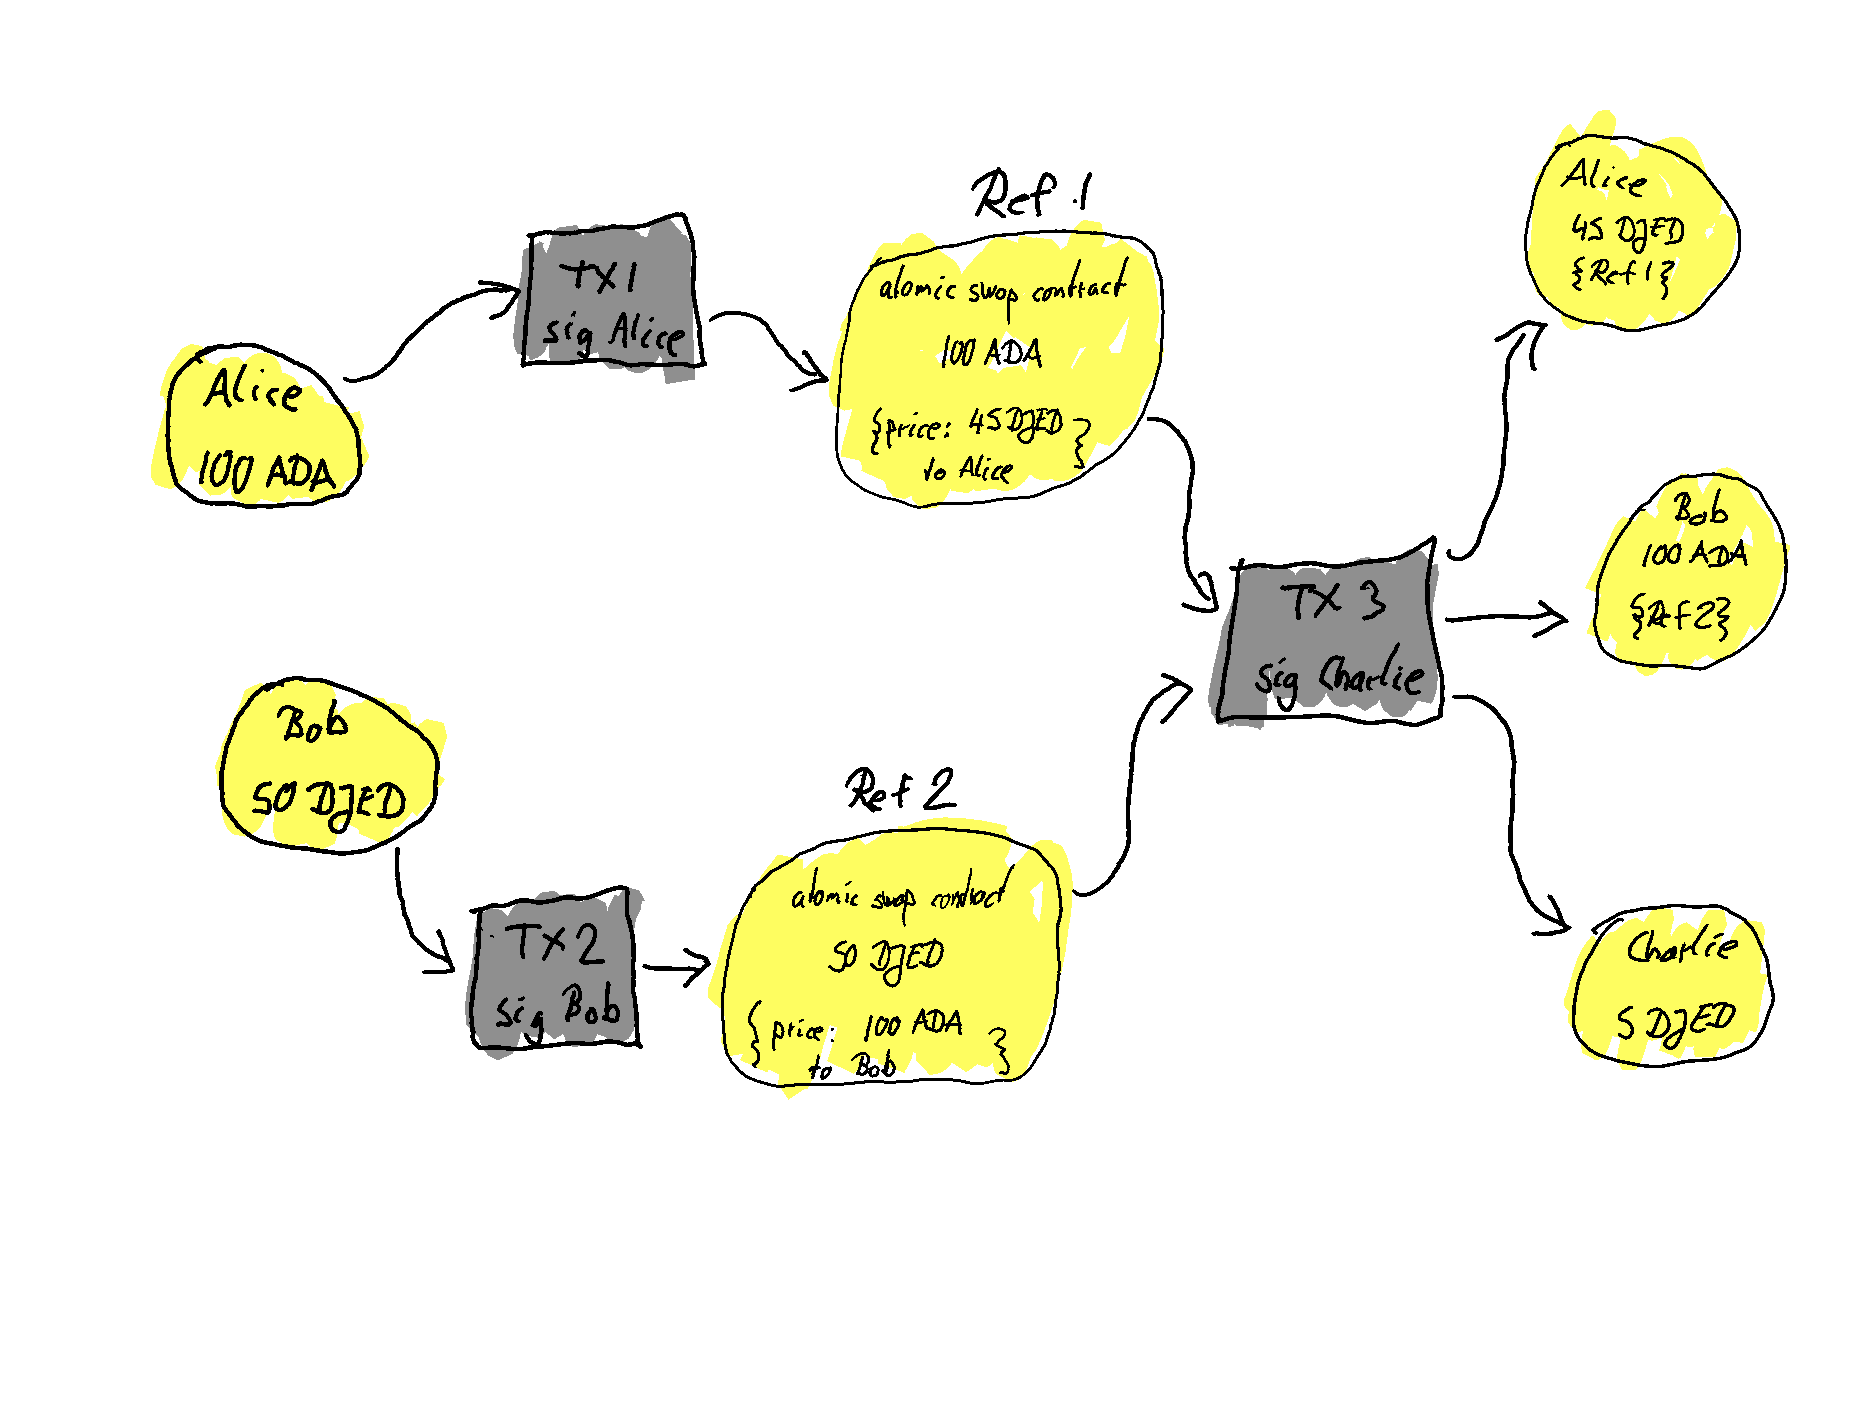 Alice
100 ADA
TX1
sig Alice
Ref.1
atomic swap contract
100 ADA
{price: 45 DJED }
to Alice
Bob
50 DJED
TX2
sig Bob
Ref 2
atomic swap contract
50 DJED
{ price: 100 ADA }
to Bob
TX 3
sig Charlie
Alice
45 DJED
{Ref1}
Bob
100 ADA
{Ref2}
Charlie
5 DJED